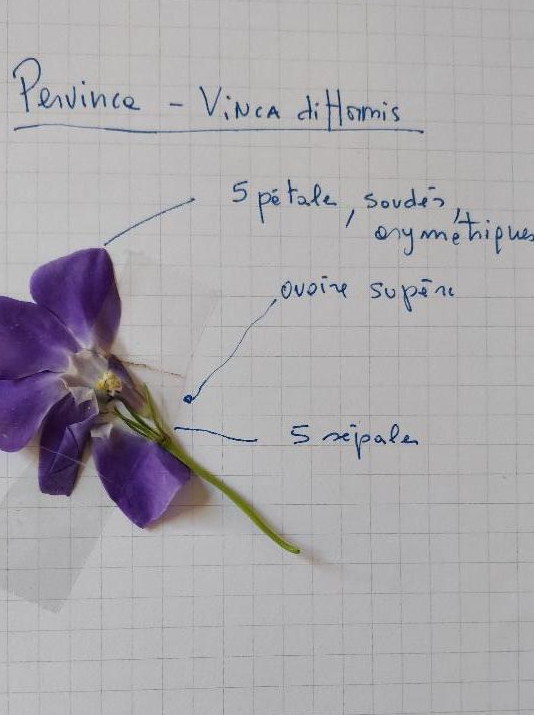 Pervince - Vinca difformis
5 pétale, soudés,
asymétriques
ovaire supère
5 sépales